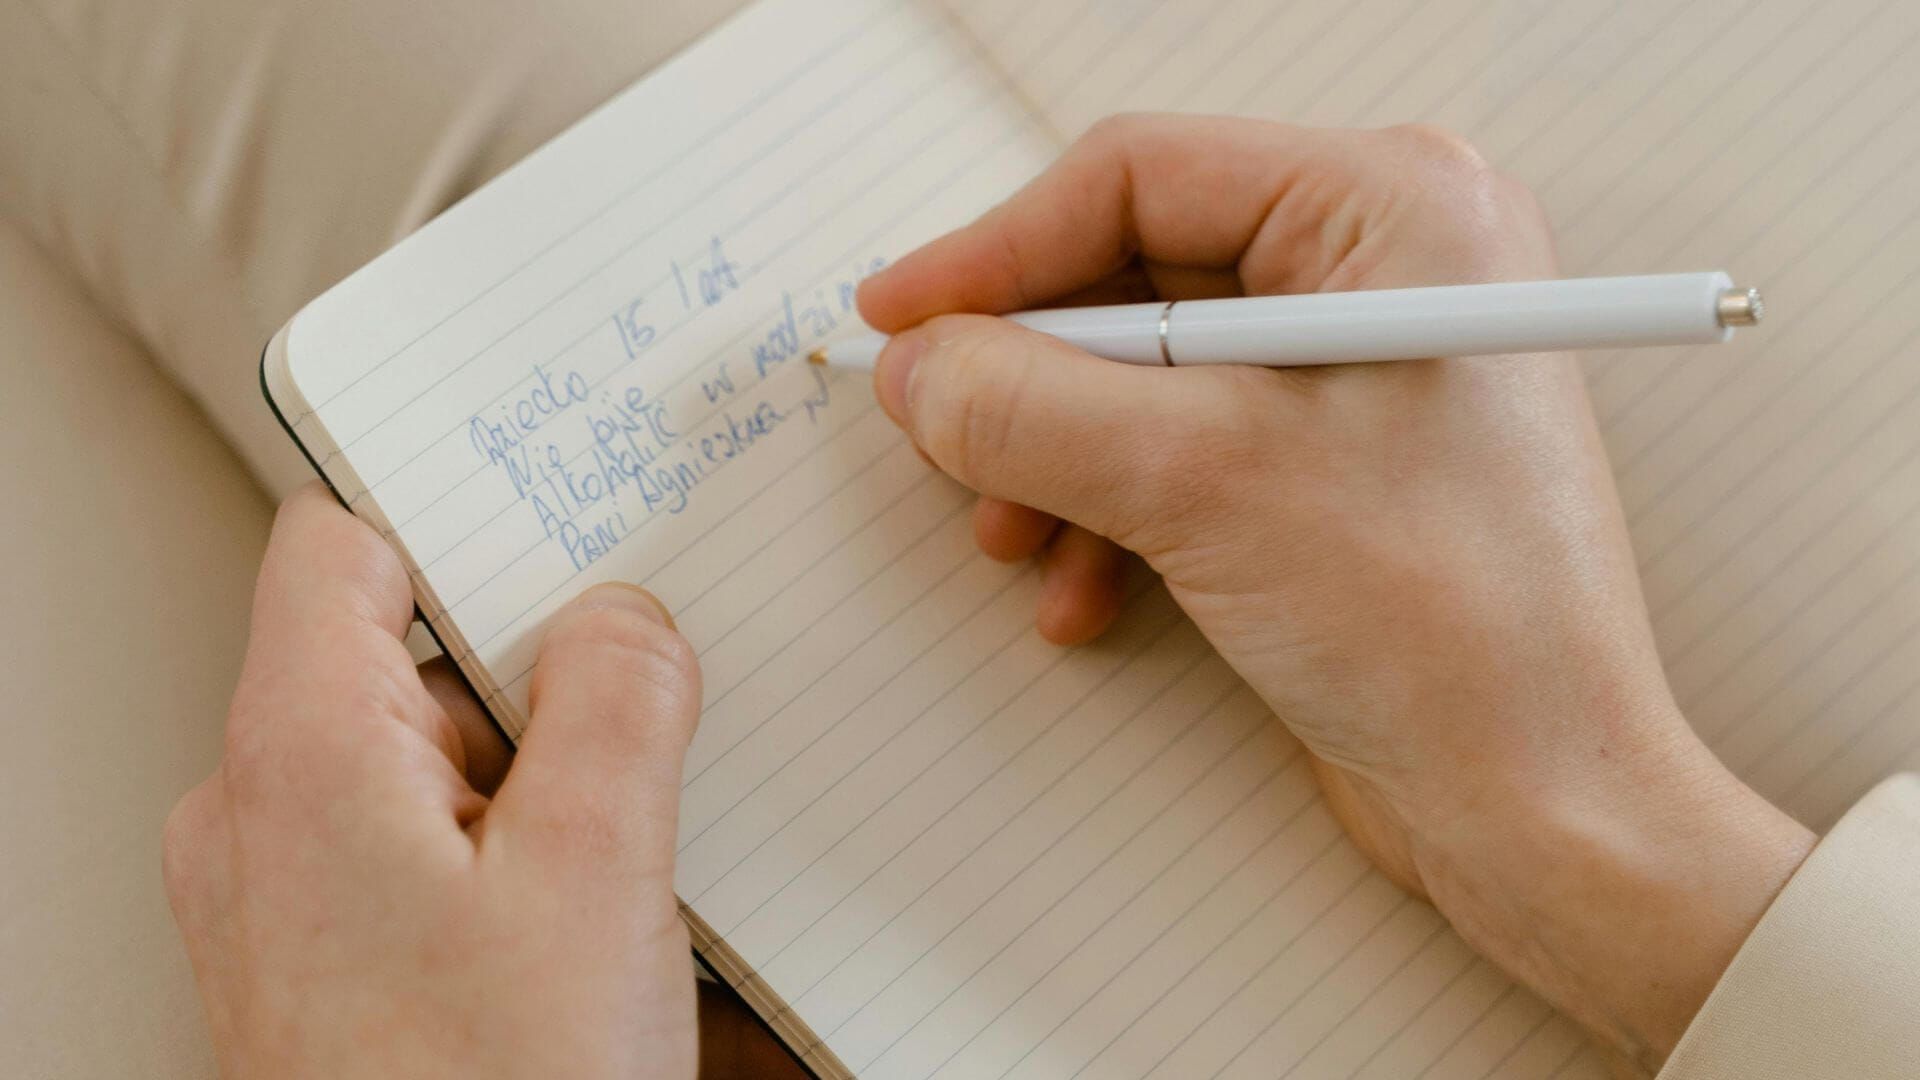 Dziecko 15 lat
Nie pije
Alkoholik w rodzinie
Pani Agnieszka N